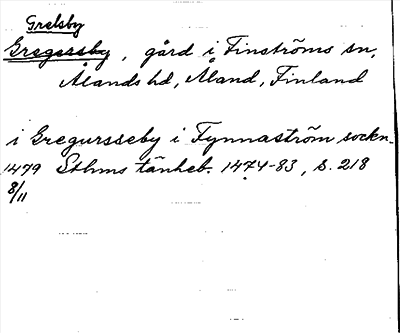 Grelsby
Gregersby, gård i Finströms sn,
Ålands hd, Åland, Finland
i Gregursseby i Fynnaström sockn
1479 Sthms tänkeb. 1474-83, s. 218
8/11